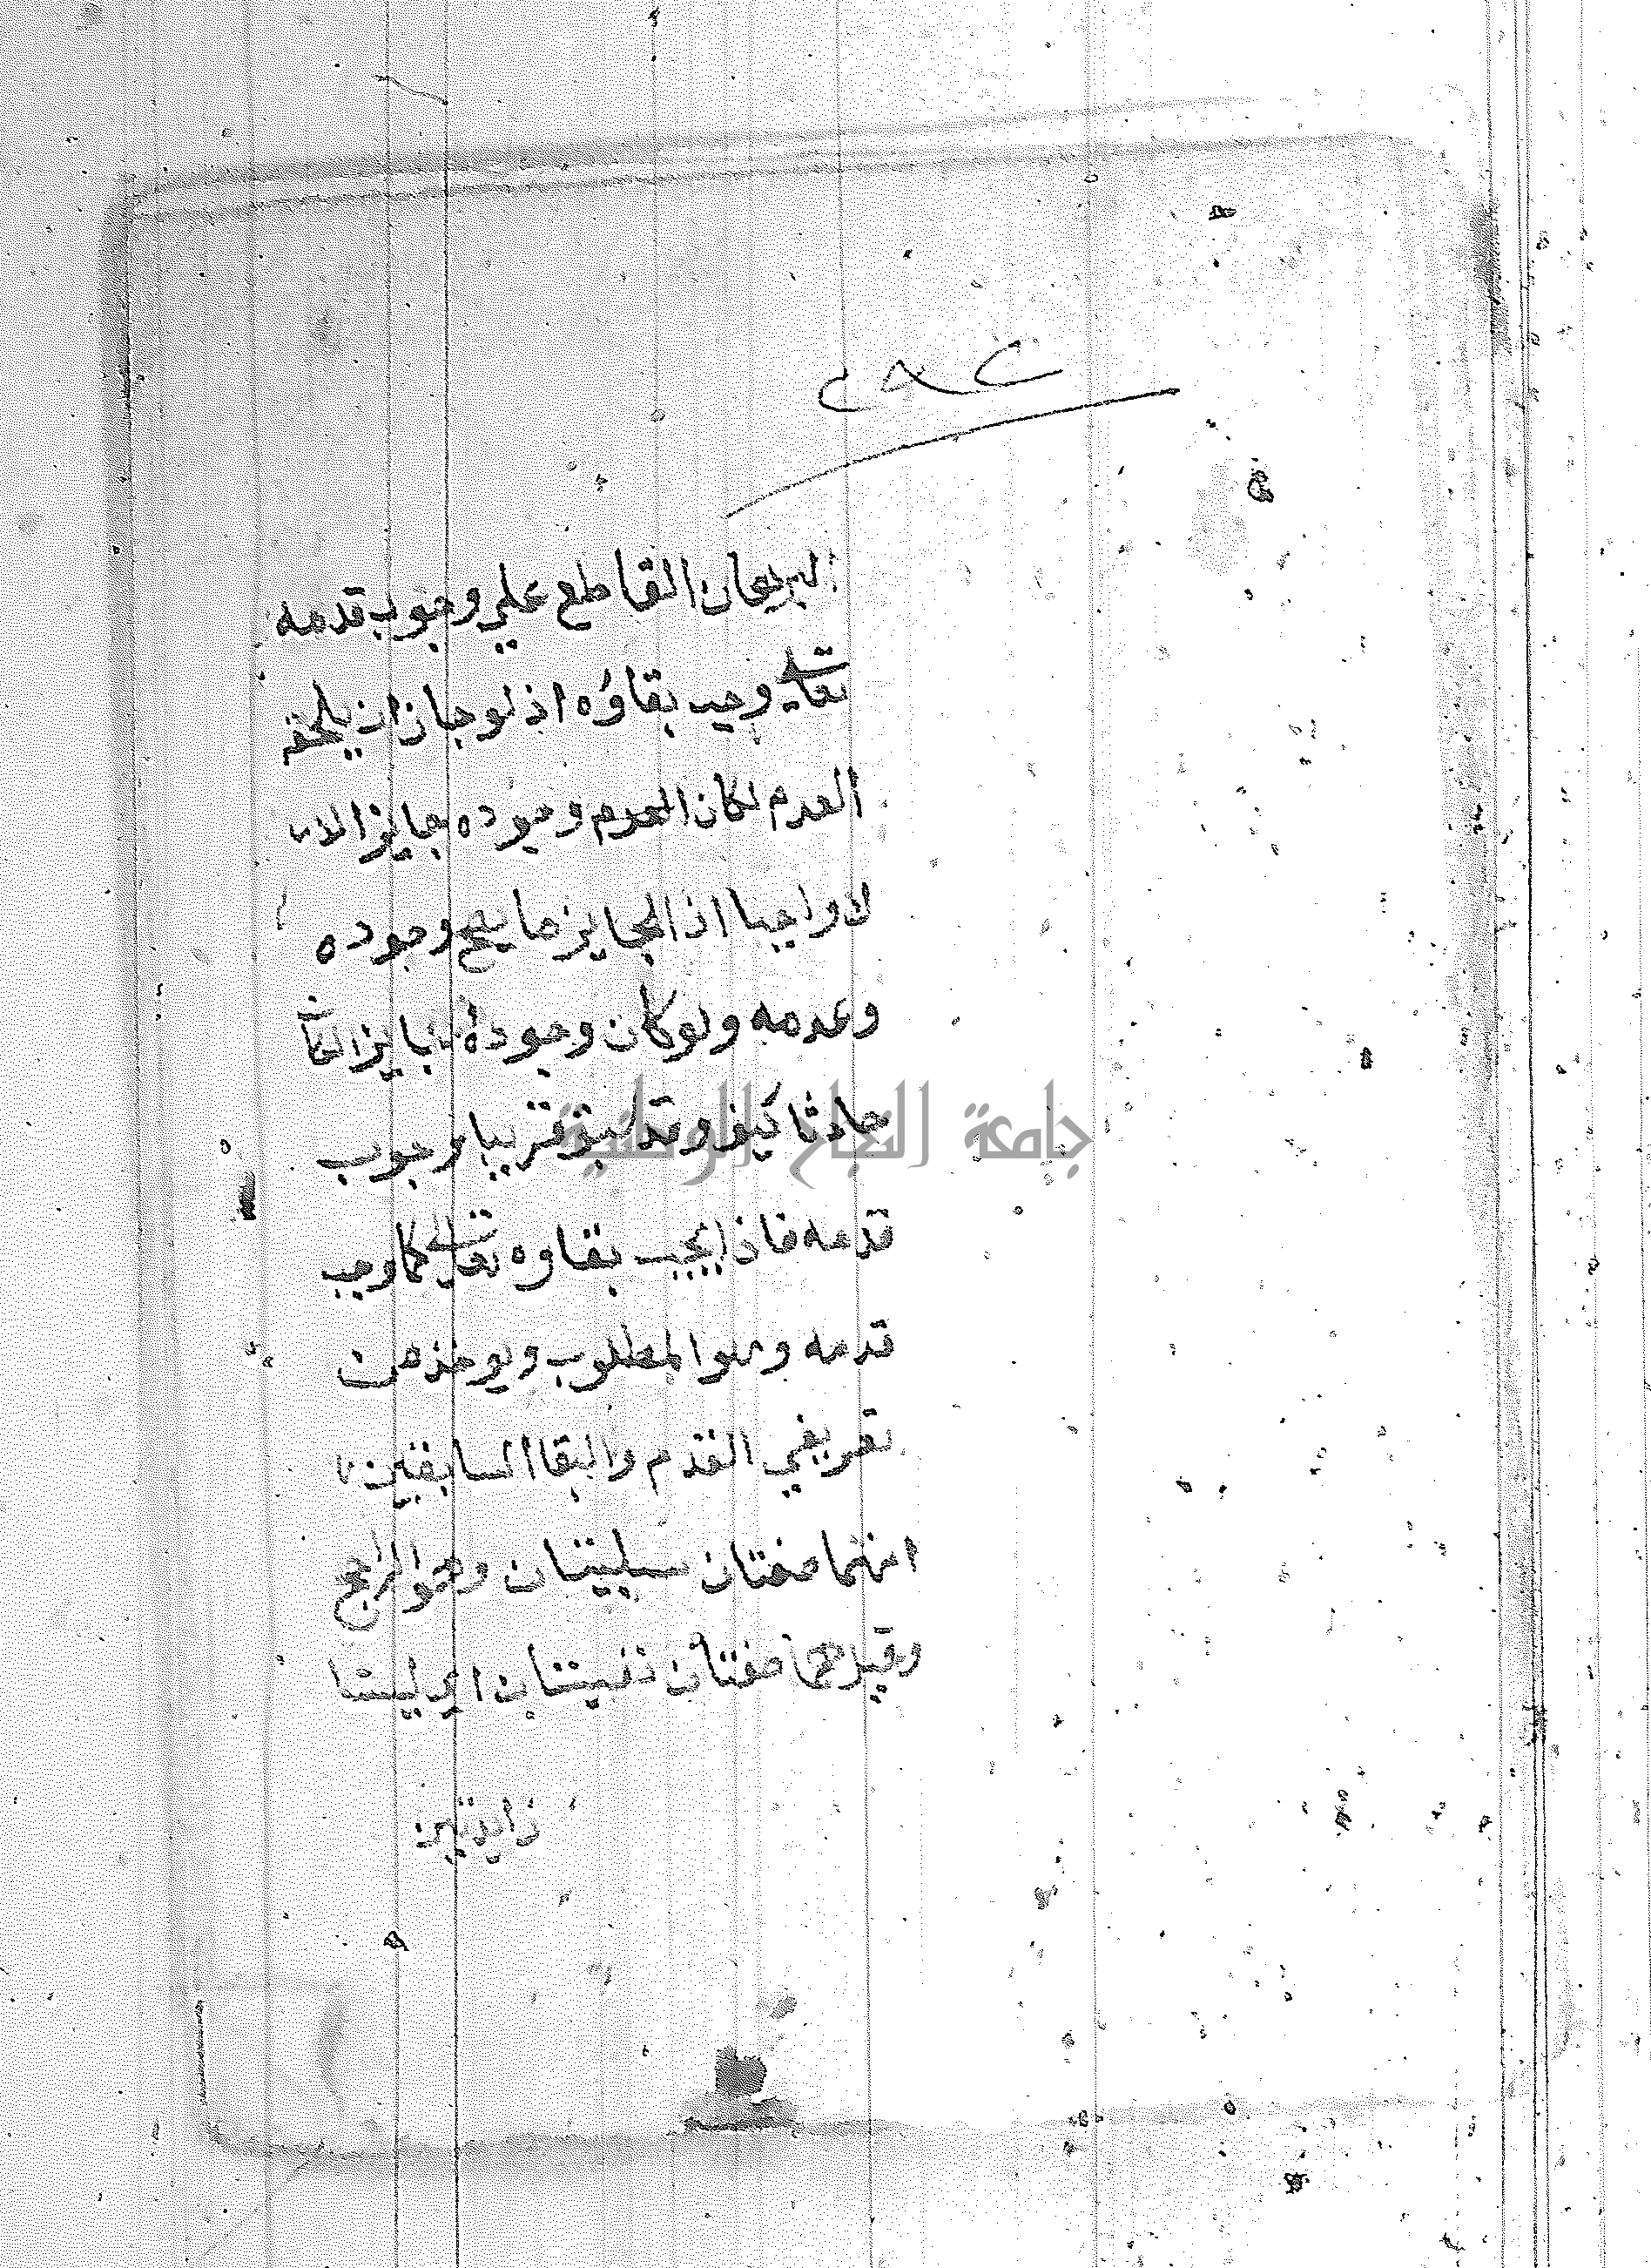 البرهان القاطع علي وجوب قدمه
تعالى وجب بقاؤه اذ لو جاز ان يلحقه
العدم لكان وجوده جايزا
لا واجبا اذ الجايز ما يصح وجوده
وعدمه ولو كان وجوده جايزا لكان
جامعة النجاح الوطنية
حادثا كيف وقد سبق قريبا وجوب
قدمه فاذا يجب بقاوه تعالى كما وجب
قدمه وهو المطلوب ويوخذ من
تعريفي القدم والبقا السابقين
انهما صفتان سلبيتان وهو الراجح
وقيل هما صفتان نفسيتان اي ليستا
زايدتين